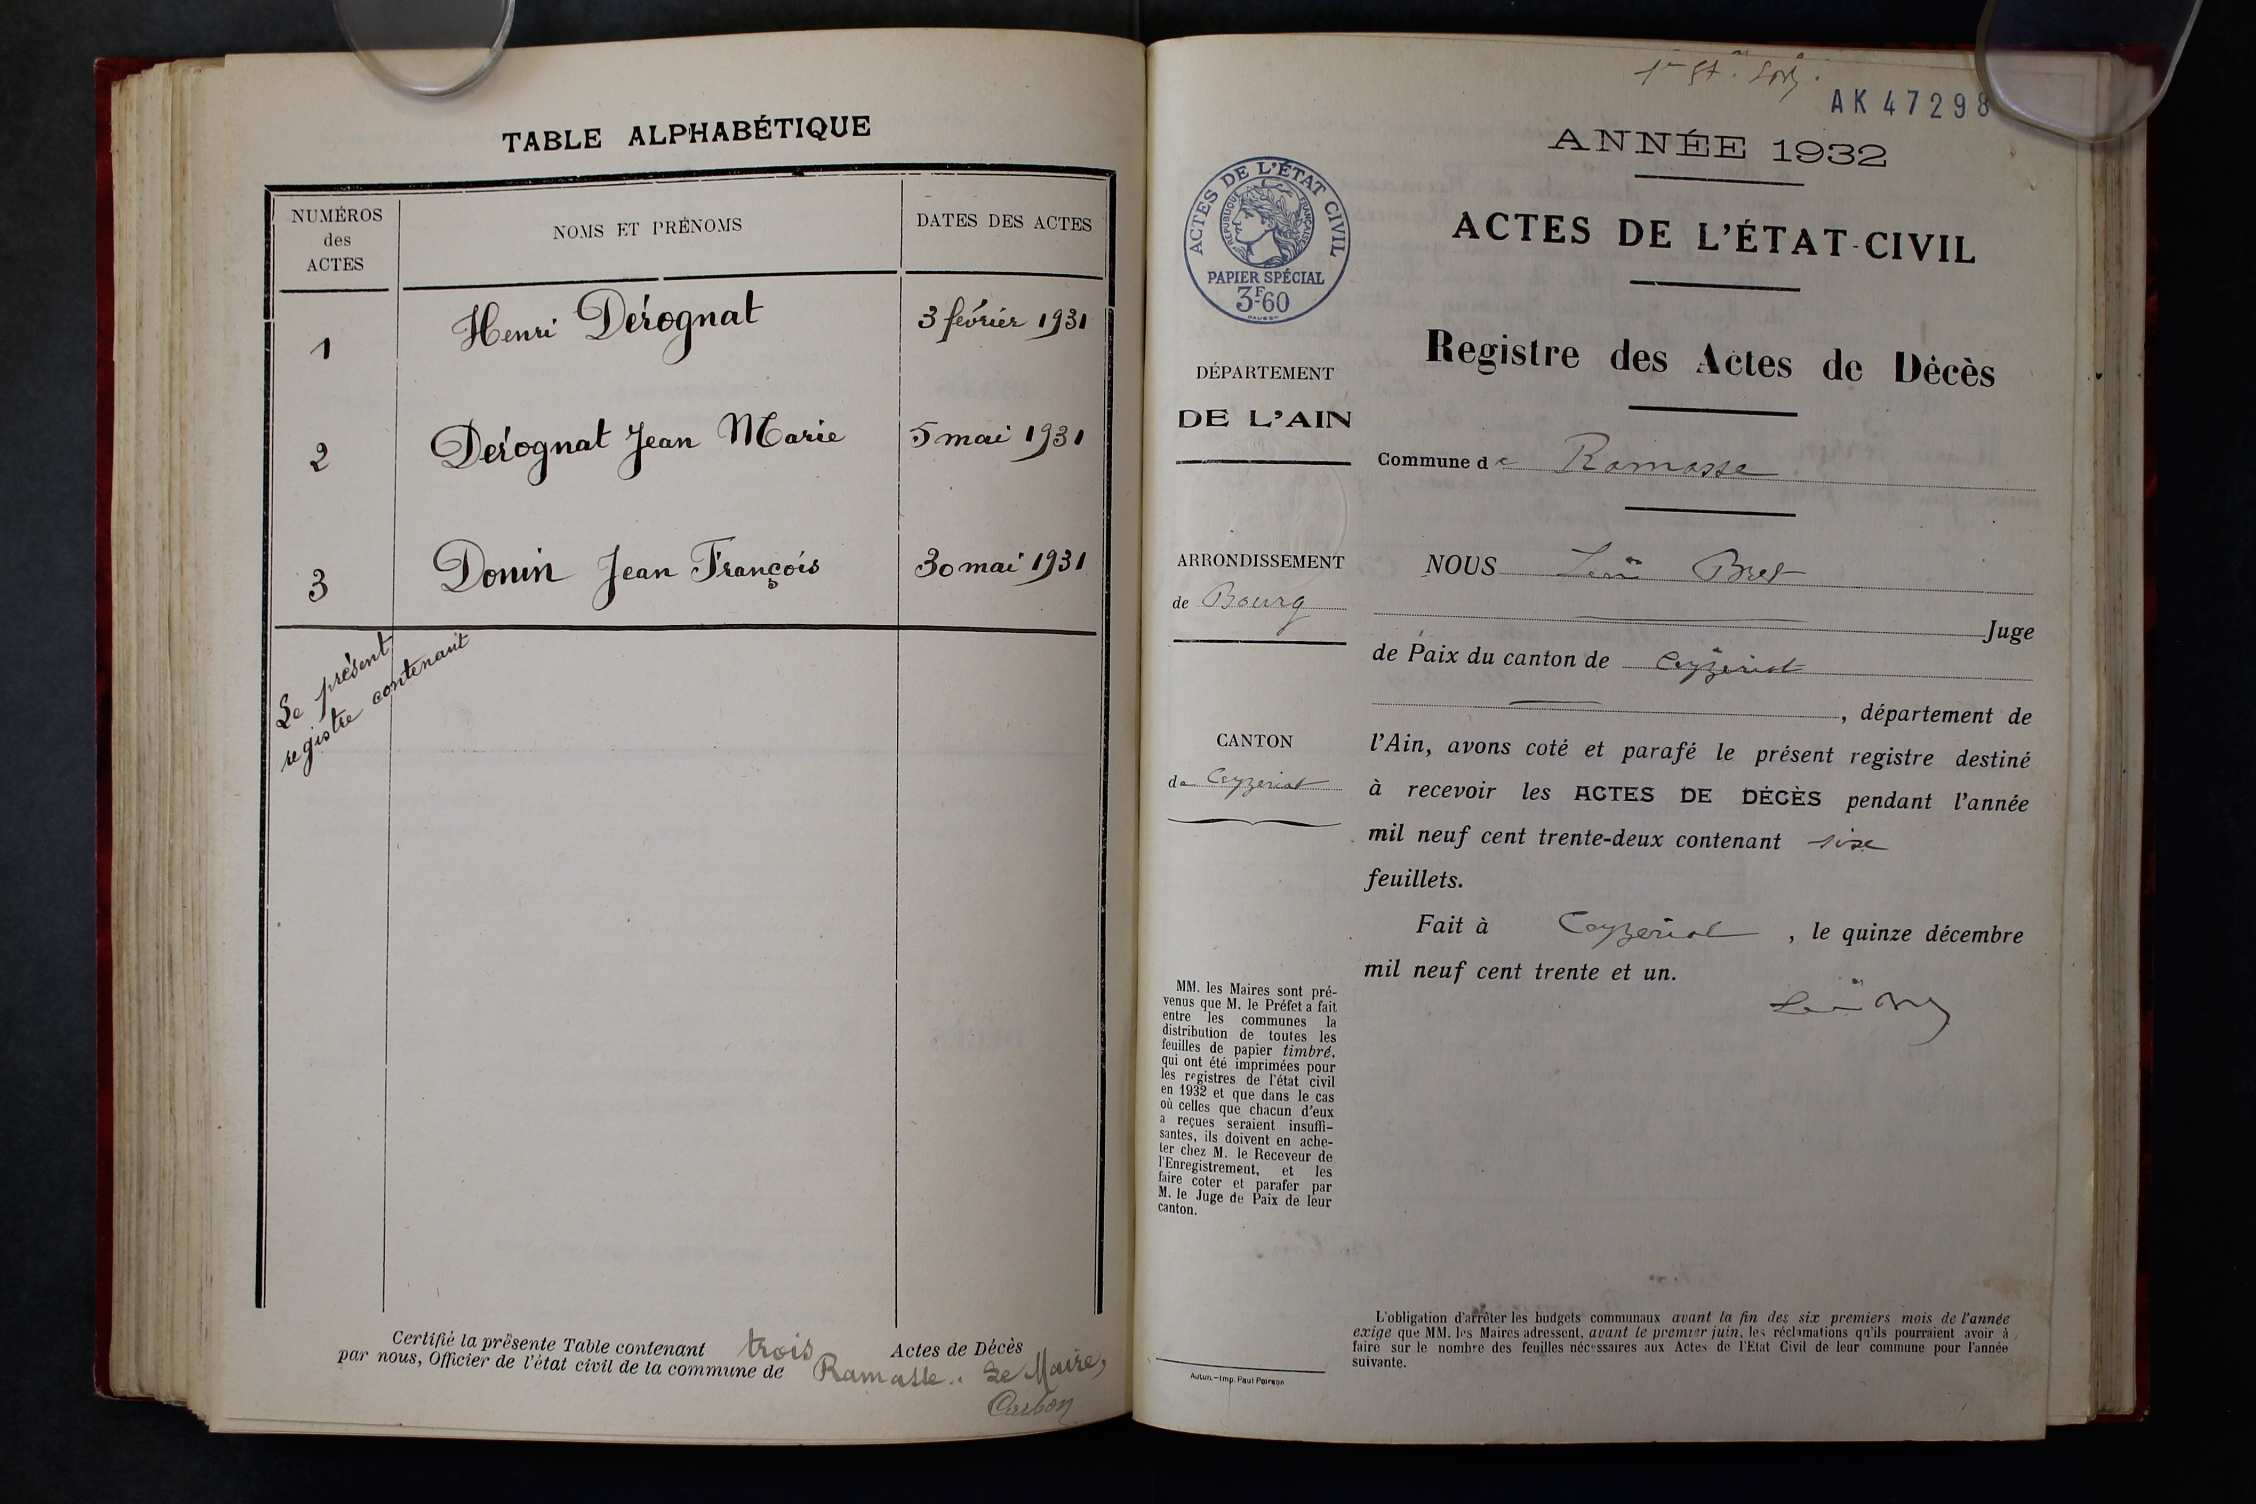 TABLE ALPHABÉTIQUE
NUMÉROS
des
ACTES
NOMS ET PRÉNOMS
DATES DES ACTES
1 Henri Dérognat 3 février 1931
2 Dérognat Jean Marie 5 mai 1931
3 Donin Jean François 30 mai 1931
Le présent
registre contenant
Certifié la présente Table contenant trois Actes de Décès
par nous, Officier de l'état civil de la commune de Ramasse. Le Maire,
Carbon
AK 47298
ANNÉE 1932
ACTES DE L'ÉTAT CIVIL
RÉPUBLIQUE FRANÇAISE
PAPIER SPÉCIAL
3F60
ACTES DE L'ÉTAT-CIVIL
Registre des Actes de Décès
DÉPARTEMENT
DE L'AIN
Commune de Ramasse
ARRONDISSEMENT
de Bourg
CANTON
de Ceyzeriat
NOUS Léon Bret
Juge
de Paix du canton de Ceyzeriat
, département de
l'Ain, avons coté et parafé le présent registre destiné
à recevoir les ACTES DE DÉCÈS pendant l'année
mil neuf cent trente-deux contenant six
feuillets.
Fait à Ceyzeriat, le quinze décembre
mil neuf cent trente et un.
MM. les Maires sont pré-
venus que M. le Préfet a fait
entre les communes la
distribution de toutes les
feuilles de papier timbré,
qui ont été imprimées pour
les registres de l'état civil
en 1932 et que dans le cas
où celles que chacun d'eux
a reçues seraient insuffi-
santes, ils doivent en ache-
ter chez M. le Receveur de
l'Enregistrement, et les
faire coter et parafer par
M. le Juge de Paix de leur
canton.
L'obligation d'arrêter les budgets communaux avant la fin des six premiers mois de l'année
exige que MM. les Maires adressent, avant le premier juin, les réclamations qu'ils pourraient avoir à
faire sur le nombre des feuilles nécessaires aux Actes de l'Etat Civil de leur commune pour l'année
suivante.
Autun.-Imp. Paul Poirson